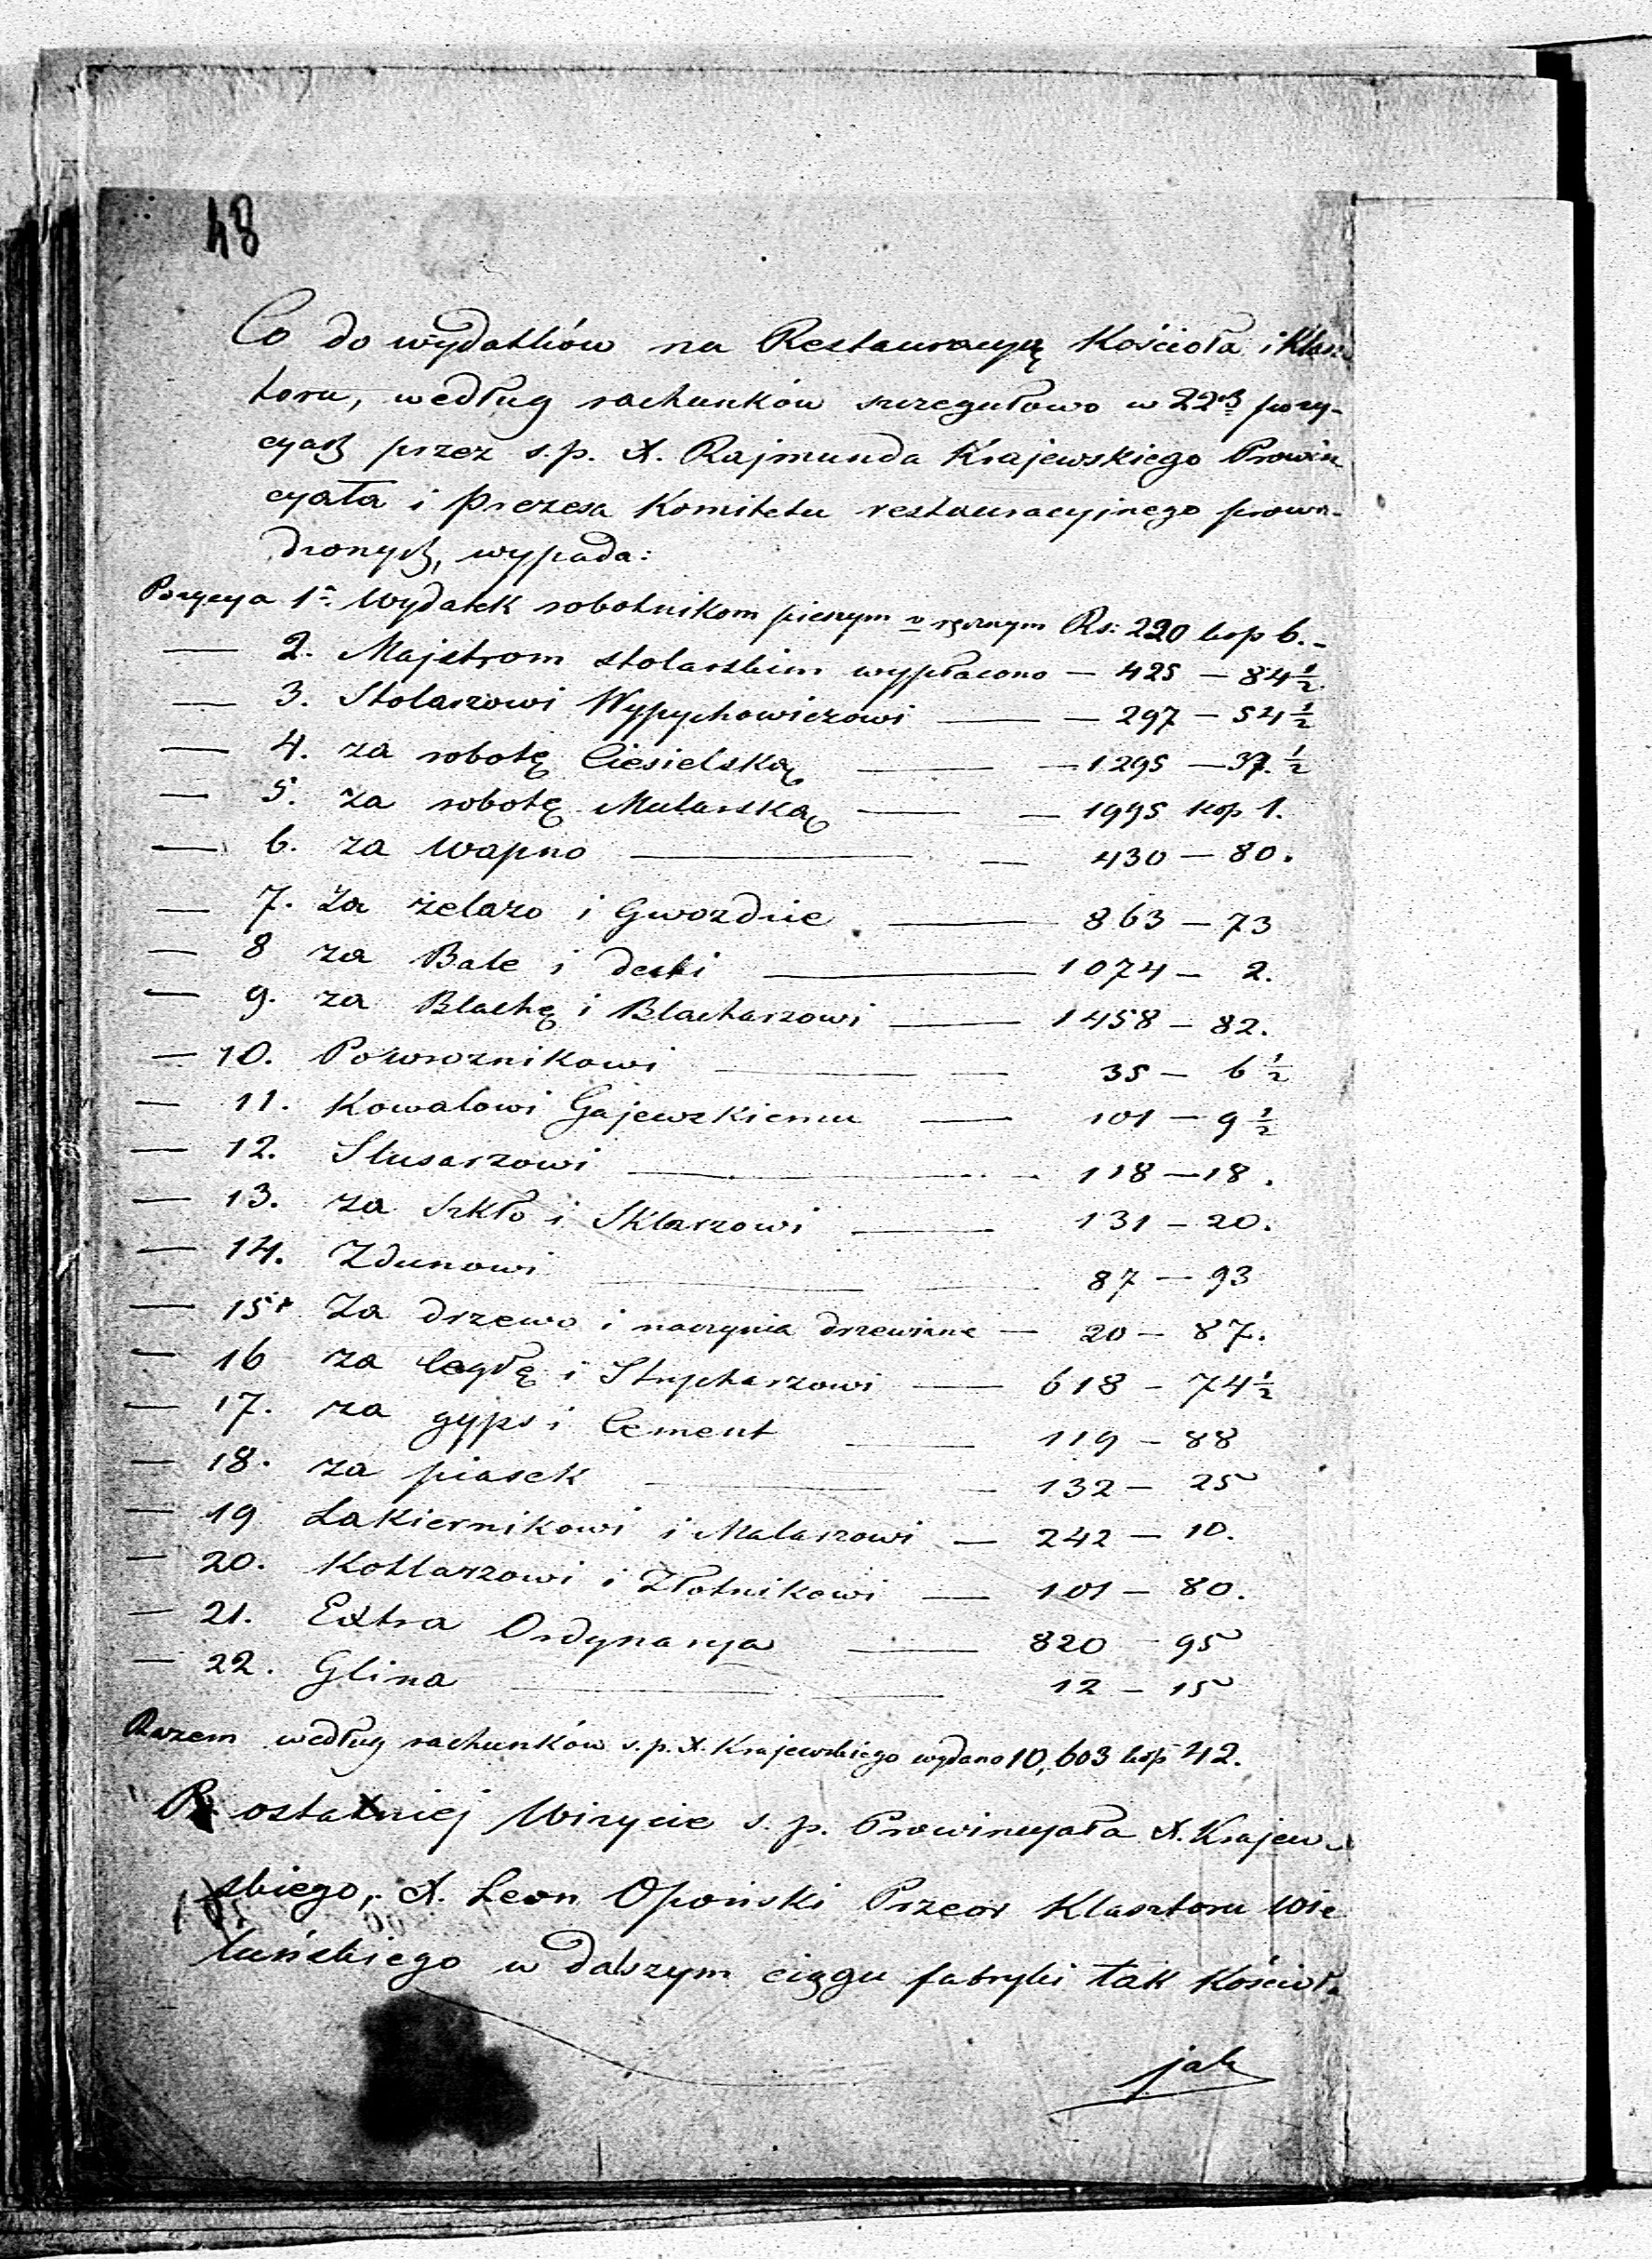 48
Co do wydatków na Restauracyę Kościoła i Klasz
toru, według rachunków szczegułowo w 22ch pozy-
cyach przez s.p. X. Rajmunda Krajewskiego Prowin
cyała i Prezesa Komitetu restauracyjnego prowa-
dzonych, wypada:
Pozycya 1a. Wydatek robotnikom pieszym v ręcznym Rs: 220 kop 6.-
— 2. Majstrom stolarskim wypłacono — 425 — 84 1/2
— 3. Stolarzowi Wypychowiczowi — — 297 — 54 1/2
— 4. za robotę Ciesielską — — 1295 — 37. 1/2
— 5. za robotę Mularską — — 1995 kop 1.
— 6. za wapno — — 430 — 80.
— 7. Za żelazo i Gwozdzie — 863 — 73
— 8 za Bale i deski — 1074 — 2.
— 9. za Blachę i Blacharzowi — 1458 — 82.
— 10. Powroznikowi — — 35 — 6 1/2
— 11. Kowalowi Gajewskiemu — 101 — 9 1/2
— 12. Slusarzowi — 118 — 18.
— 13. za Szkło i Sklarzowi — 131 — 20.
— 14. Zdunowi — 87 — 93
— 15. Za drzewo i naczynia drzewiane — 20 — 87.
— 16 za Cegłę i Strycharzowi — 618 — 74 1/2
— 17. za gyps i Cement — 119 — 88
— 18. za piasek — — 132 — 25
— 19 Lakiernikowi i Malarzowi — 242 — 10.
— 20. Kotlarzowi i Złotnikowi — 101 — 80.
— 21. Extra Ordynarya — 820 — 95
— 22. Glina — — 12 — 15
Razem według rachunków s.p. X. Krajewskiego wydano 10,603 kop 42.
Po ostatniej Wizycie s. p. Prowincyała X. Krajew-
skiego, X. Leon Opoński Przeor Klasztoru Wie
luńskiego w dalszym ciągu fabryki tak Kościoł.
jak